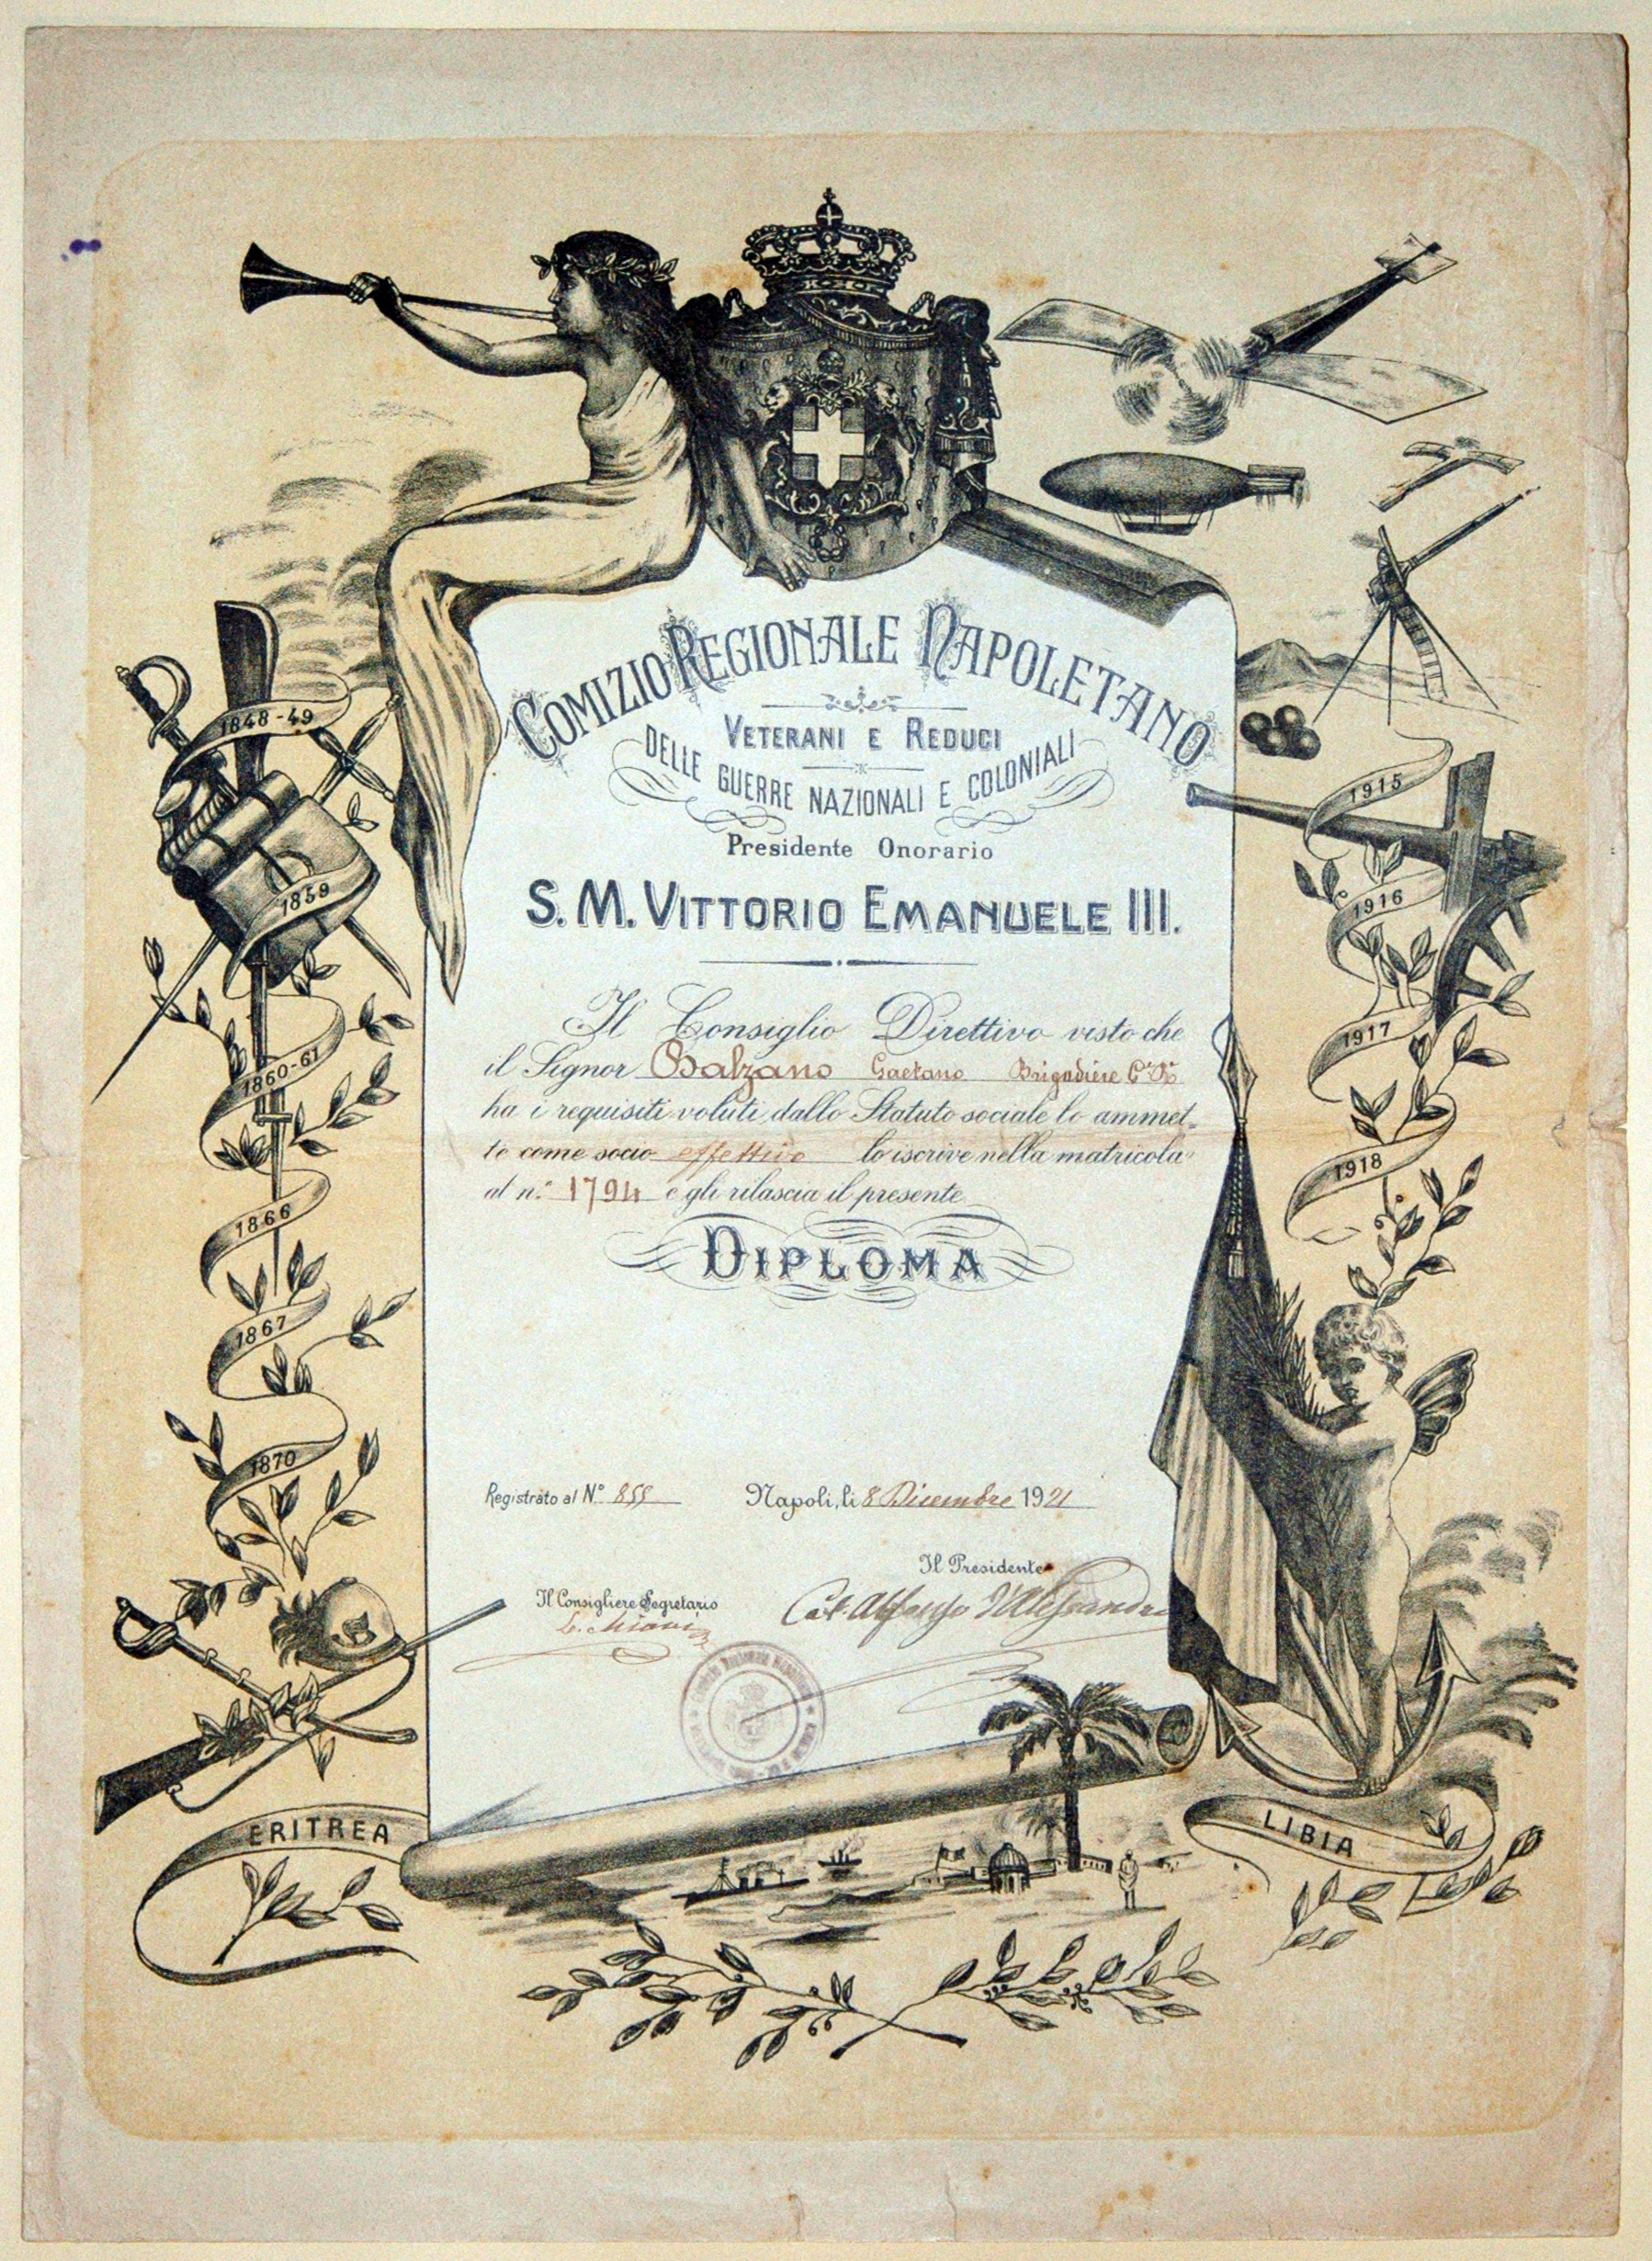 COMIZIO REGIONALE NAPOLETANO
VETERANI E REDUCI
DELLE GUERRE NAZIONALI E COLONIALI
Presidente Onorario
S. M. VITTORIO EMANUELE III.
Il Consiglio Direttivo visto che
il Signor Balzano Gaetano Brigadiere
ha i requisiti voluti dallo Statuto sociale lo ammet-
te come socio effettivo lo iscrive nella matricola
al n.º 1794 e gli rilascia il presente
DIPLOMA
Registrato al Nº 855 Napoli, li 8 Dicembre 1921
Il Presidente
Alfonso d'Alessandro
Il Consigliere Segretario
1848-49
1859
1860-61
1866
1867
1870
ERITREA
1915
1916
1917
1918
LIBIA